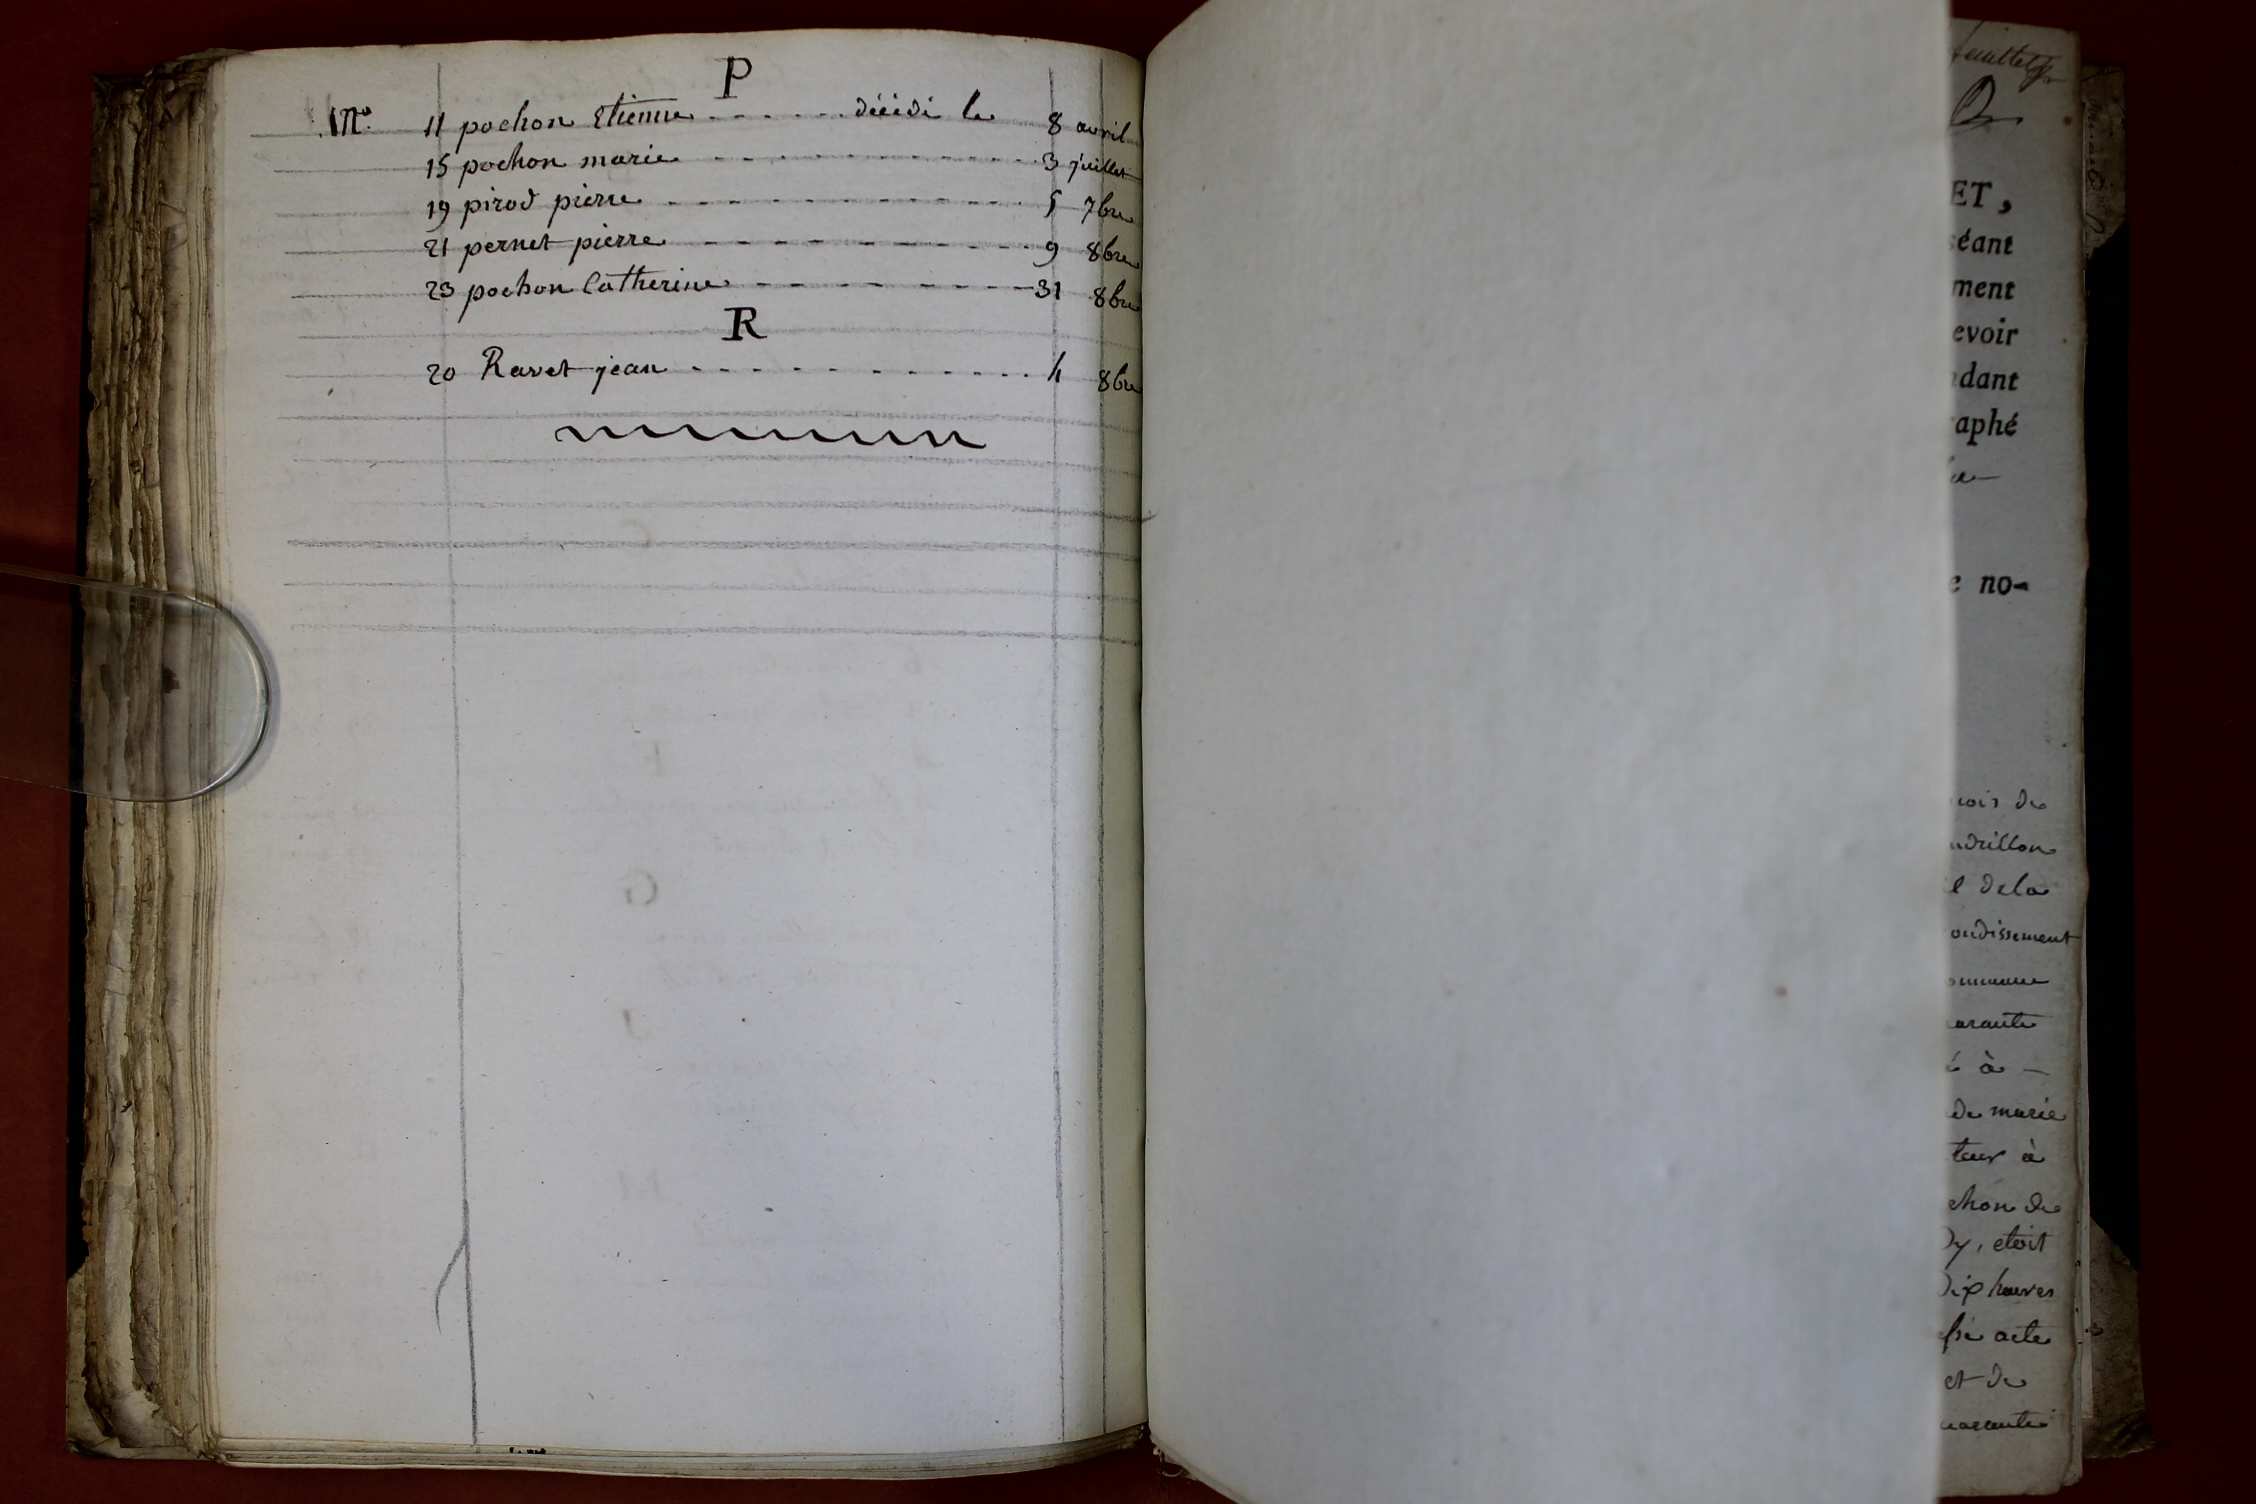 P
N.º 11 pochon Etienne - - - - - - décédé le 8 avril
15 pochon marie - - - - - - - - - - - 3 juillet
19 pirod pierre - - - - - - - - - - - - 5 7bre
21 pernet pierre - - - - - - - - - - - 9 8bre
23 pochon Catherine - - - - - - - - - 31 8bre
R
20 Ravet jean - - - - - - - - - - - 4 8bre
feuillet
ET,
séant
ment
evoir
ndant
raphé
e no-
mois de
udrillon
l dela
ondissement
ommune
arante
é à —
de marie
teur à
chon de
Dy, etoit
Dix heures
acte
et de
uarante